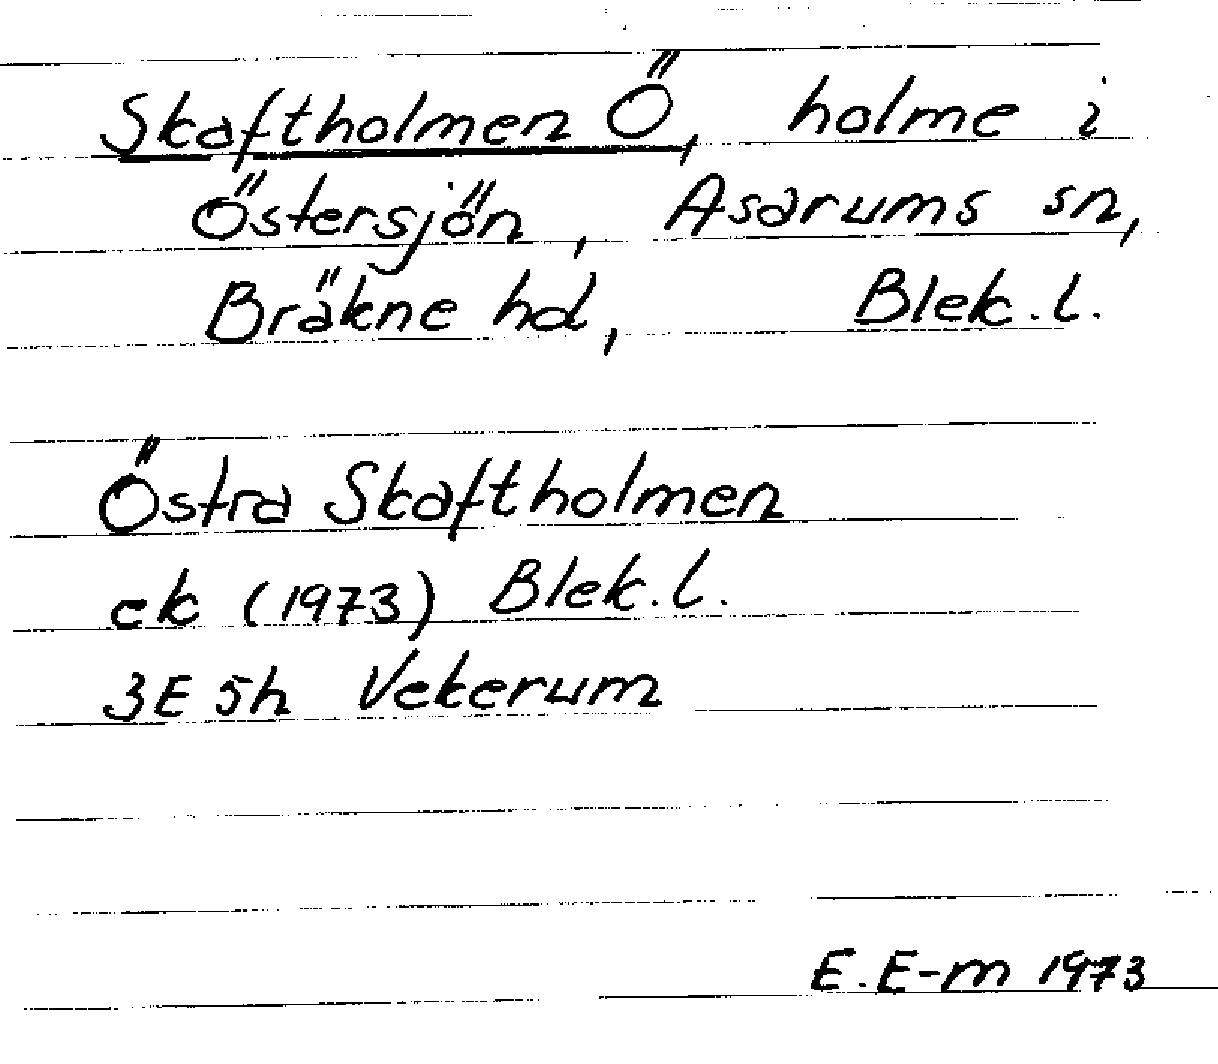 Skaftholmen Ö, holme i
Östersjön, Asarums sn,
Bräkne hd, Blek.l.
Östra Skaftholmen
ek (1973) Blek.l.
3E 5h Vekerum
E.E-m 1973